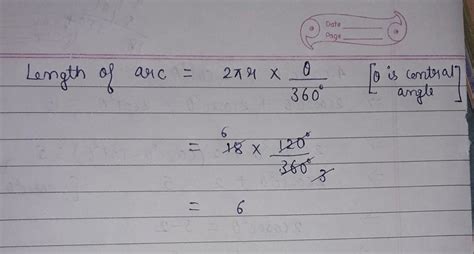 Date
Page
Length of arc = 2πr × θ/360° [θ is central angle]
= 18 × 120°/360° 6 3
= 6